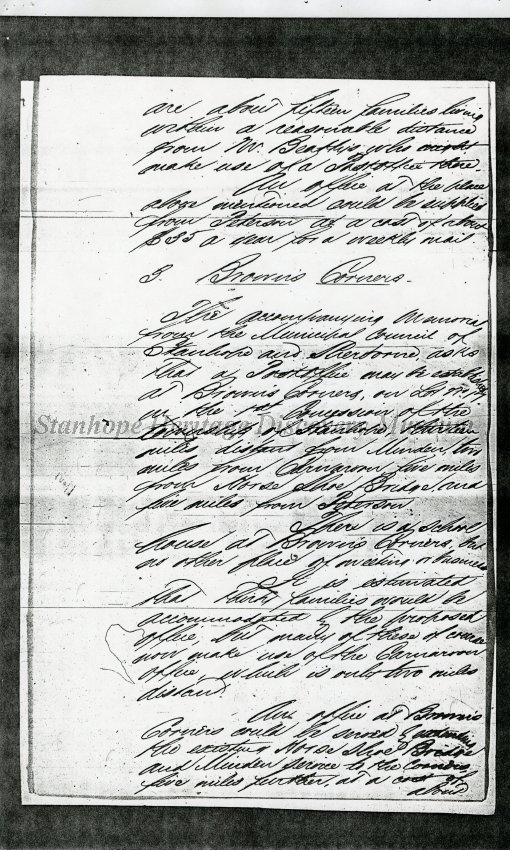 are about fifteen families living
within a reasonable distance
from Mr. Beatty's, who might
make use of a Postoffice there.
An office at the place
above mentioned could be supplied
from Peterson at a cost of about
$35 a year for a weekly mail
3. Brown's Corners.
The accompanying Memorial
from the Municipal Council of
Stanhope and Sherborne, asks
that a Postoffice may be established
at Brown's Corners, on Lot No.
in the 1st Concession of the
Stanhope Heritage Discovery Museum
miles distant from Minden, two
miles from Carnarvon, five miles
from Horse Shoe Bridge and
five miles from Peterson.
There is a School
House at Brown's Corners, but
no other place of meeting or business
It is estimated
that thirty families would be
accommodated by the proposed
office, but many of these of course
now make use of the Carnarvon
office, which is only two miles
distant
An office at Brown's
Corners could be served by extending
the existing Horse Shoe Bridge
and Minden service to the Corners,
five miles further, at a cost of
about